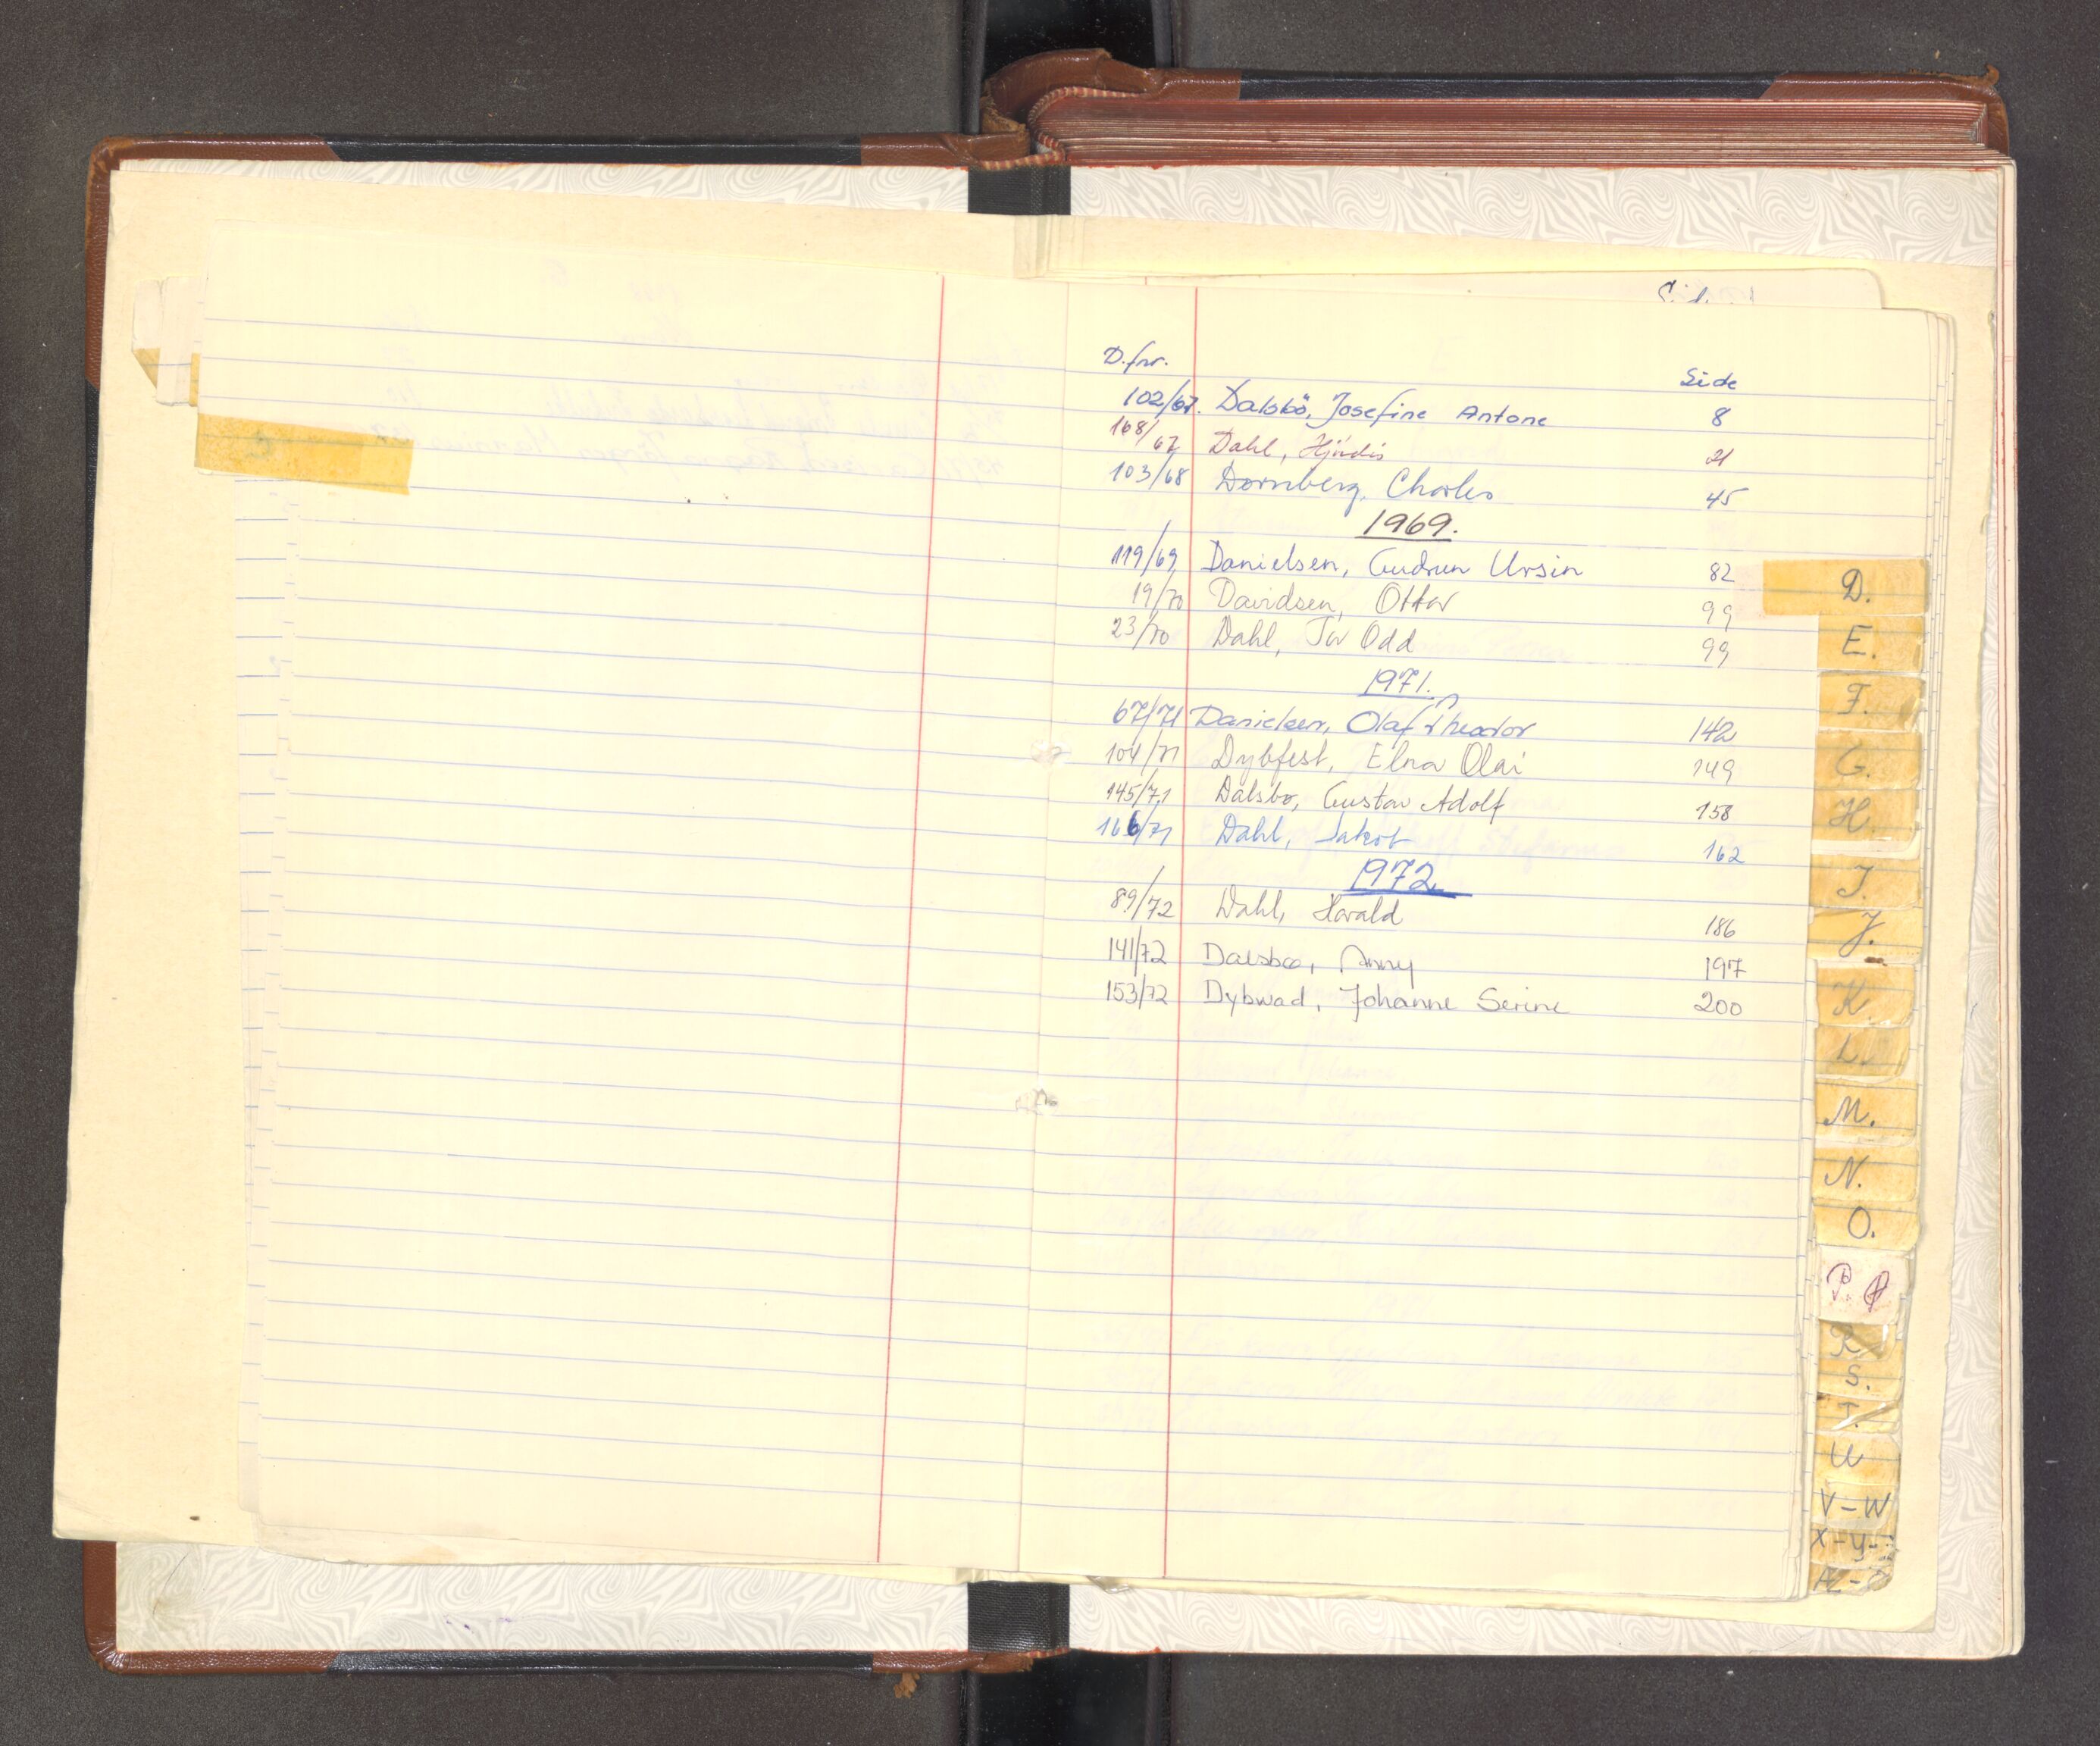 D.fnr. Side
102/67. Dalsbö, Josefine Antone 8
168/67 Dahl, Hjördis 21
103/68 Dornberg, Charles 45
1969.
119/69 Danielsen, Gudrun Ursin 82
19/70 Davidsen, Otter 99
23/70 Dahl, Tor Odd 99
1971.
67/71 Danielsen, Olaf Theodor 142
104/71 Dybfest, Elna Olai 149
145/71 Dalsbo, Gustav Adolf 158
166/71 Dahl, Jakob 162
1972
89/72 Dahl, Harald 186
141/72 Dalsboe, Anny 197
153/72 Dybwad, Johanne Serine 200
D.
E.
F.
G.
H.
I.
J.
K.
L.
M.
N.
O.
P. Q
R
S.
T.
U
V-W
X-Y-